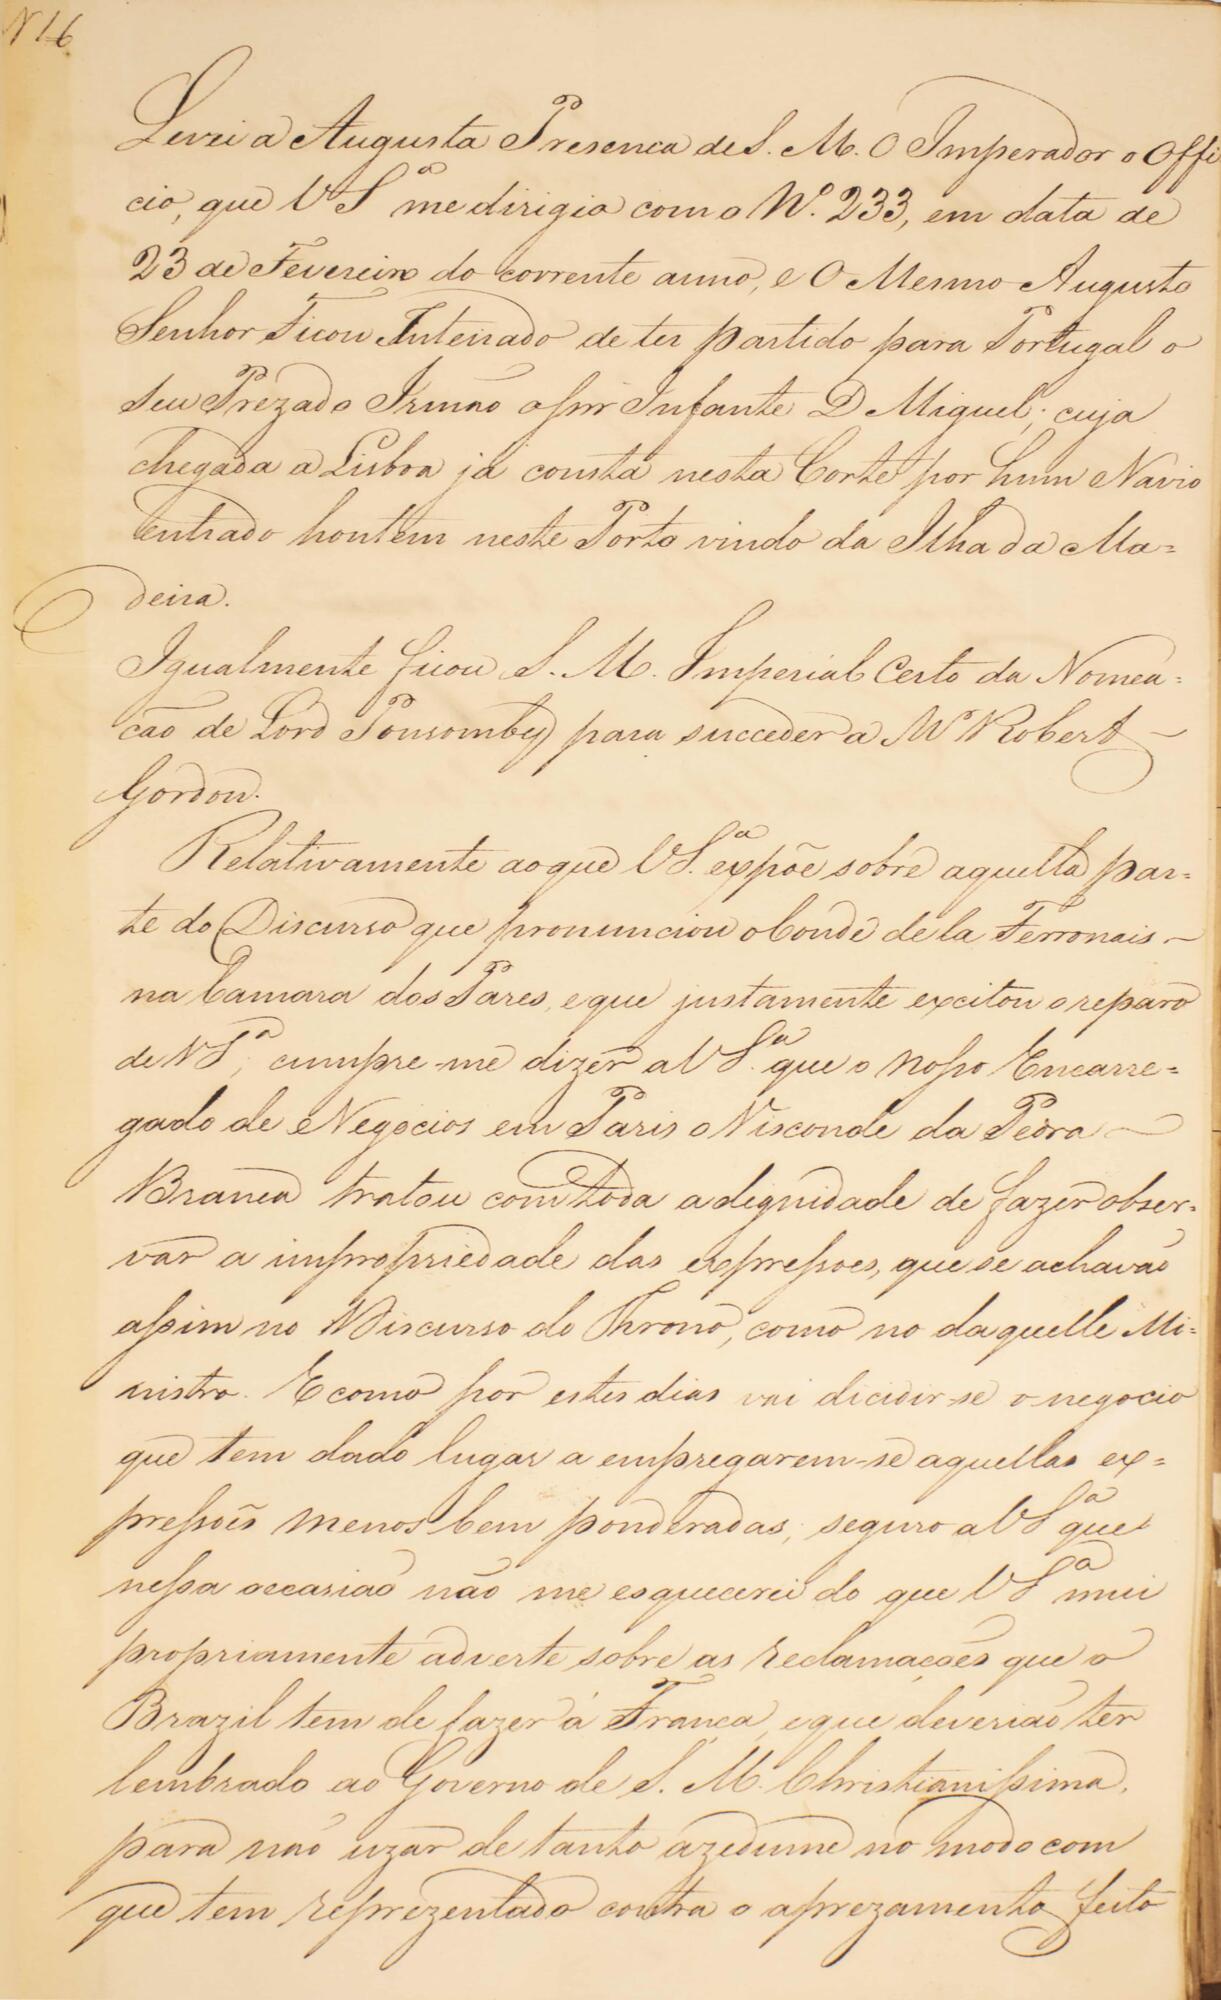 N 16
Levei a Augusta Presenca de S. M. O Imperador o Offi
cio, que V Sª me dirigio com o Nº. 233, em data de
23 de Fevereiro do corrente anno, e O Mesmo Augusto
Senhor Ficou Inteirado de ter partido para Portugal o
Seu Prezado Irmão o Snr Infante D Miguel; cuja
chegada a Lisboa já consta nesta Corte por hum Navio
entrado hontem neste Porto vindo da Ilha da Ma=
deira.
Igualmente ficou S. M. Imperial Certo da Nomea=
cão de Lord Ponsomby para succeder a Mr Robert
Gordon.
Relativamente ao que V Sª. expõe sobre aquella par=
te do Discurso que pronunciou o Conde de la Ferronais
na Camara dos Pares, e que justamente excitou o reparo
de V Sª, cumpre-me dizer a V Sª. que o nosso Encarre=
gado de Negocios em Paris o Visconde da Pedra
Branca tratou com toda a dignidade de fazer obser=
var a impropriedade das expressoes, que se achavão
assim no Discurso do Throno, como no daquelle Mi=
nistro. E como por estes dias vai dicidir-se o negocio
que tem dado lugar a empregarem-se aquellas ex=
pressoẽs menos bem ponderadas, seguro a V Sª que
nessa occasião não me esquecerei do que V Sª mui
propriamente adverte sobre as reclamações que o
Brazil tem de fazer á Franca, e que deverião ter
lembrado ao Governo de S. M. Christianissima,
para não uzar de tanto azedume no modo com
que tem reprezentado contra o aprezamento feito